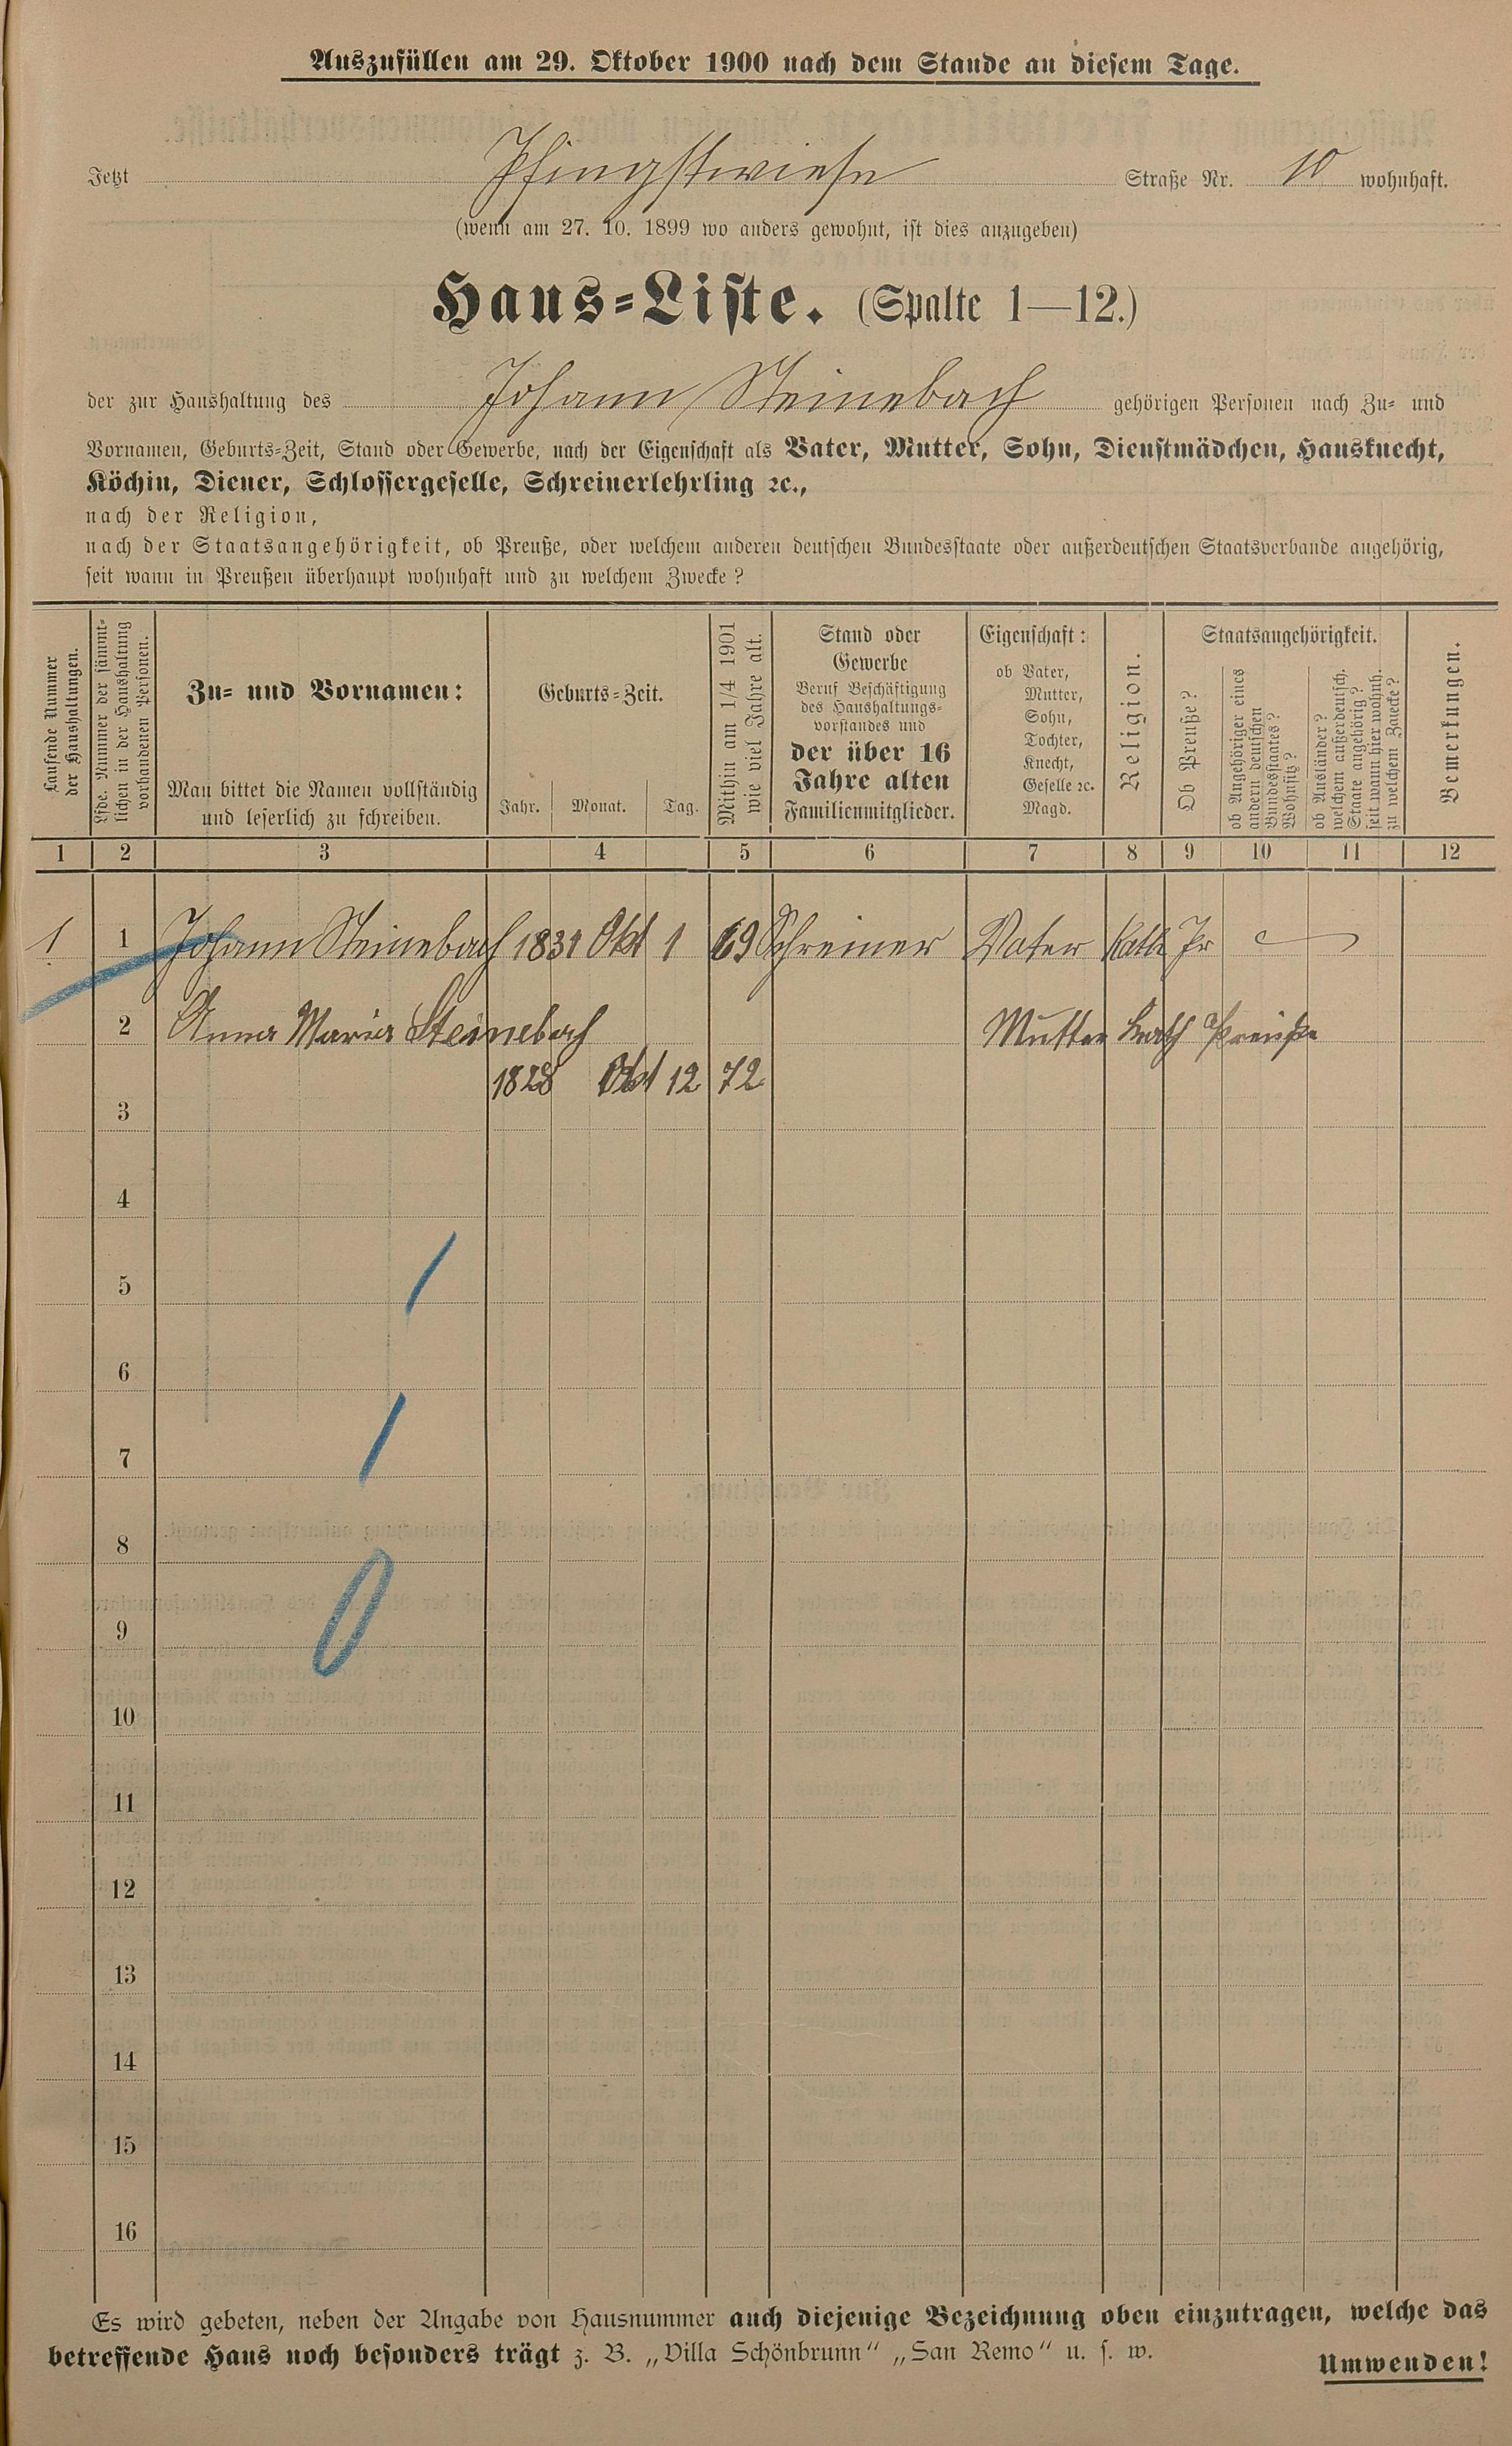 Auszufüllen am 29. Oktober 1900 nach dem Stande an diesem Tage.
Jetzt Pfingstwiese Straße Nr. 10 wohnhaft.
(wenn am 27. 10. 1899 wo anders gewohnt, ist dies anzugeben)
Haus-Liste. (Spalte 1—12.)
der zur Haushaltung des Johann Steinebach gehörigen Personen nach Zu- und
Vornamen, Geburts-Zeit, Stand oder Gewerbe, nach der Eigenschaft als Vater, Mutter, Sohn, Dienstmädchen, Hausknecht,
Köchin, Diener, Schlossergeselle, Schreinerlehrling ꝛc.,
nach der Religion,
nach der Staatsangehörigkeit, ob Preuße, oder welchem anderen deutschen Bundesstaate oder außerdeutschen Staatsverbande angehörig,
seit wann in Preußen überhaupt wohnhaft und zu welchem Zwecke?
Laufende Nummer
der Haushaltungen.
Lfde. Nummer der sämmt-
lichen in der Haushaltung
vorhandenen Personen.
Zu- und Vornamen:
Man bittet die Namen vollständig
und leserlich zu schreiben.
Geburts-Zeit.
Jahr. Monat. Tag.
Mithin am 1/4 1901
wie viel Jahre alt.
Stand oder
Gewerbe
Beruf Beschäftigung
des Haushaltungs-
vorstandes und
der über 16
Jahre alten
Familienmitglieder.
Eigenschaft:
ob Vater,
Mutter,
Sohn,
Tochter,
Knecht,
Geselle ꝛc.
Magd.
Religion.
Staatsangehörigkeit.
Ob Preuße?
ob Angehöriger eines
andern deutschen
Bundesstaates?
Wohnsitz?
ob Ausländer?
welchem außerdeutsch.
Staate angehörig?
seit wann hier wohnh.
zu welchem Zwecke?
Bemerkungen.
1 2 3 4 5 6 7 8 9 10 11 12
1 1 Johann Steinebach 1831 Okt 1 69 Schreiner Vater Kath Pr
2 Anna Maria Steinebach Mutter Kath Preuße
1828 Okt 12 72
3
4
5
6
7
8
9
10
11
12
13
14
15
16
Es wird gebeten, neben der Angabe von Hausnummer auch diejenige Bezeichnung oben einzutragen, welche das
betreffende Haus noch besonders trägt z. B. „Villa Schönbrunn“ „San Remo“ u. s. w.
Umwenden!